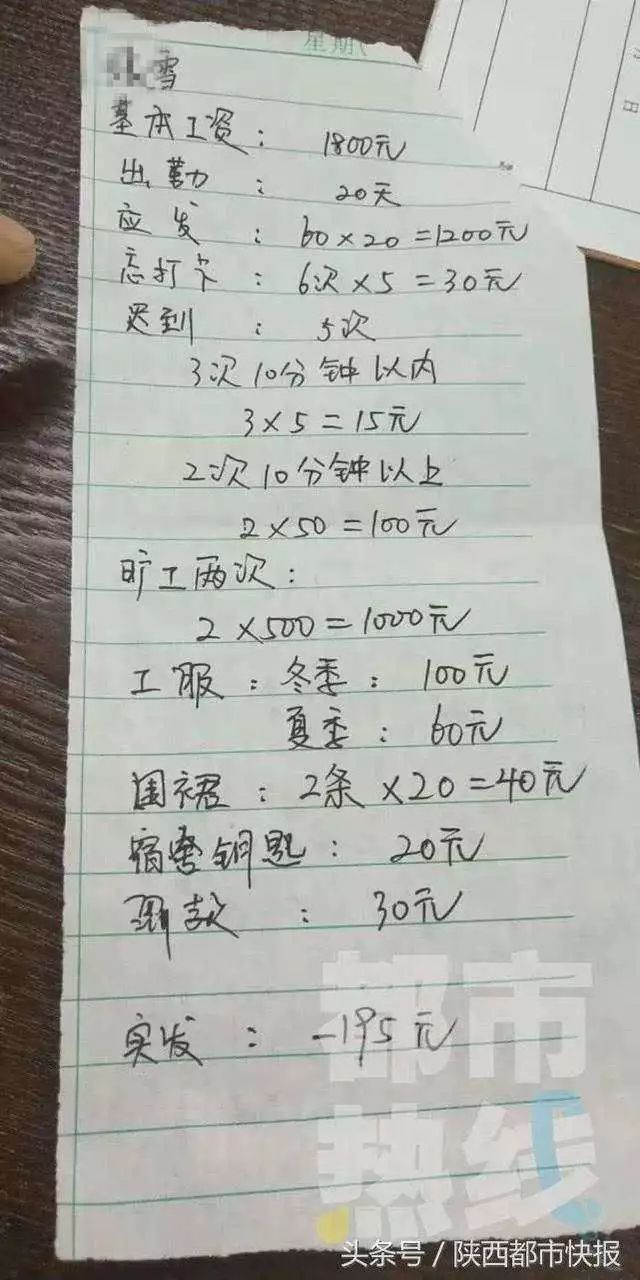 星期(
雪
基本工资： 1800元
出勤： 20天
应发： 60×20=1200元
忘打卡： 6次×5=30元
迟到： 5次
3次10分钟以内
3×5=15元
2次10分钟以上
2×50=100元
旷工两次：
2×500=1000元
工服：冬季： 100元
夏季： 60元
围裙：2条×20=40元
宿舍钥匙： 20元
罚款： 30元
实发： -195元
都市
热线
头条号/陕西都市快报
日